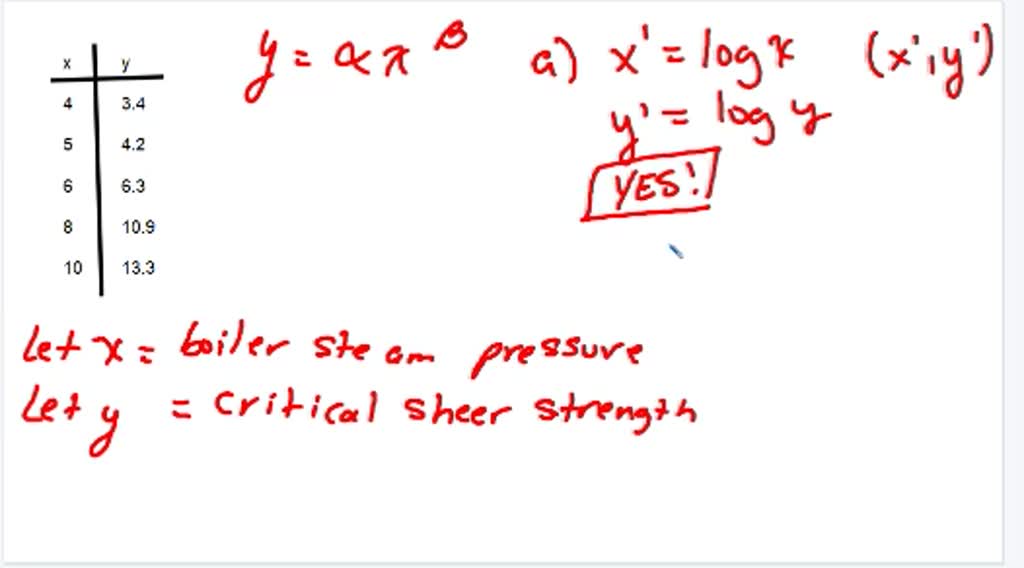 x y
4 3.4
5 4.2
6 6.3
8 10.9
10 13.3
y = α x ^ β
a) x' = log x (x', y')
y' = log y
YES!
Let x = boiler steam pressure
Let y = critical sheer strength